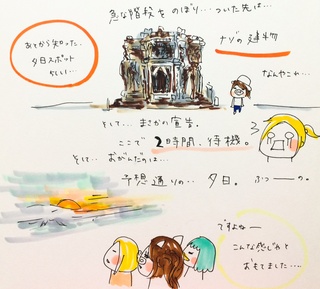 急な階段をのぼり…ついた先は…
ナゾの建物
あとから知った。
夕日スポット
らしい…
なんやこれ…
そして…まさかの宣告。
ここで2時間、待機。
そして…おがんだのは…
予想通りの…夕日。
ふつーの。
ですよねー
こんな感じかと
おもてました…